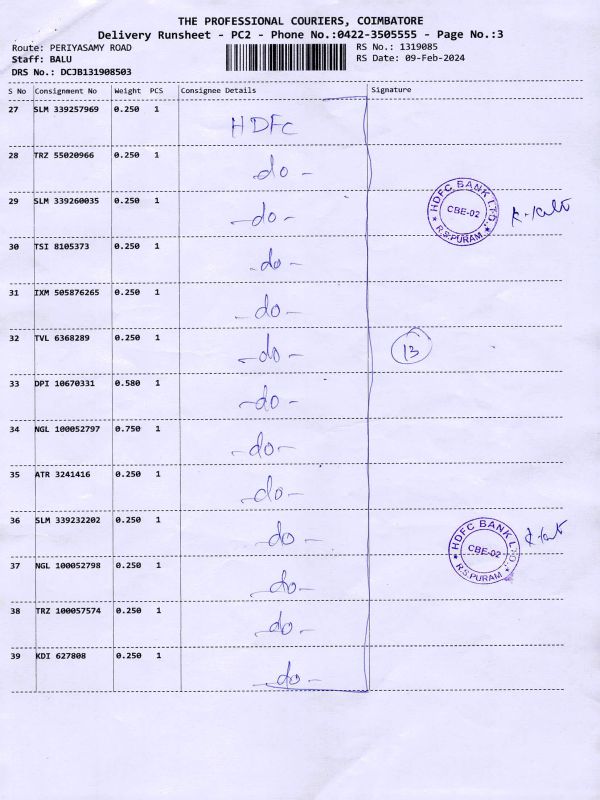 THE PROFESSIONAL COURIERS, COIMBATORE
Delivery Runsheet - PC2 - Phone No.:0422-3505555 - Page No.:3
Route: PERIYASAMY ROAD RS No.: 1319085
Staff: BALU RS Date: 09-Feb-2024
DRS No.: DCJB131908503
S No Consignment No Weight PCS Consignee Details Signature
27 SLM 339257969 0.250 1
HDFC
28 TRZ 55020966 0.250 1
-do-
29 SLM 339260035 0.250 1
-do-
HDFC BANK LTD.,
CBE-02
R.S.PURAM
30 TSI 8105373 0.250 1
-do-
31 IXM 505876265 0.250 1
-do-
32 TVL 6368289 0.250 1
-do-
13
33 DPI 10670331 0.580 1
-do-
34 NGL 100052797 0.750 1
-do-
35 ATR 3241416 0.250 1
-do-
36 SLM 339232202 0.250 1
-do-
HDFC BANK LTD.,
CBE-02
R.S.PURAM
37 NGL 100052798 0.250 1
-do-
38 TRZ 100057574 0.250 1
-do-
39 KDI 627808 0.250 1
-do-